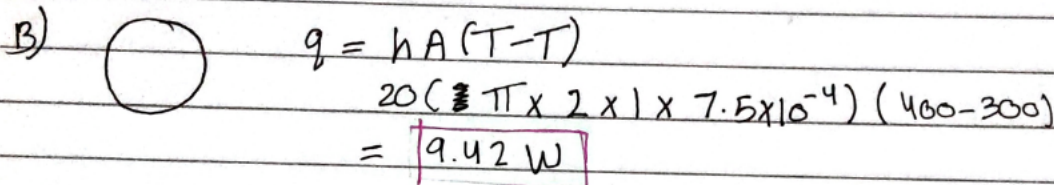 B) q = hA(T-T)
20( π x 2 x 1 x 7.5x10⁻⁴) (400-300)
= 9.42 W